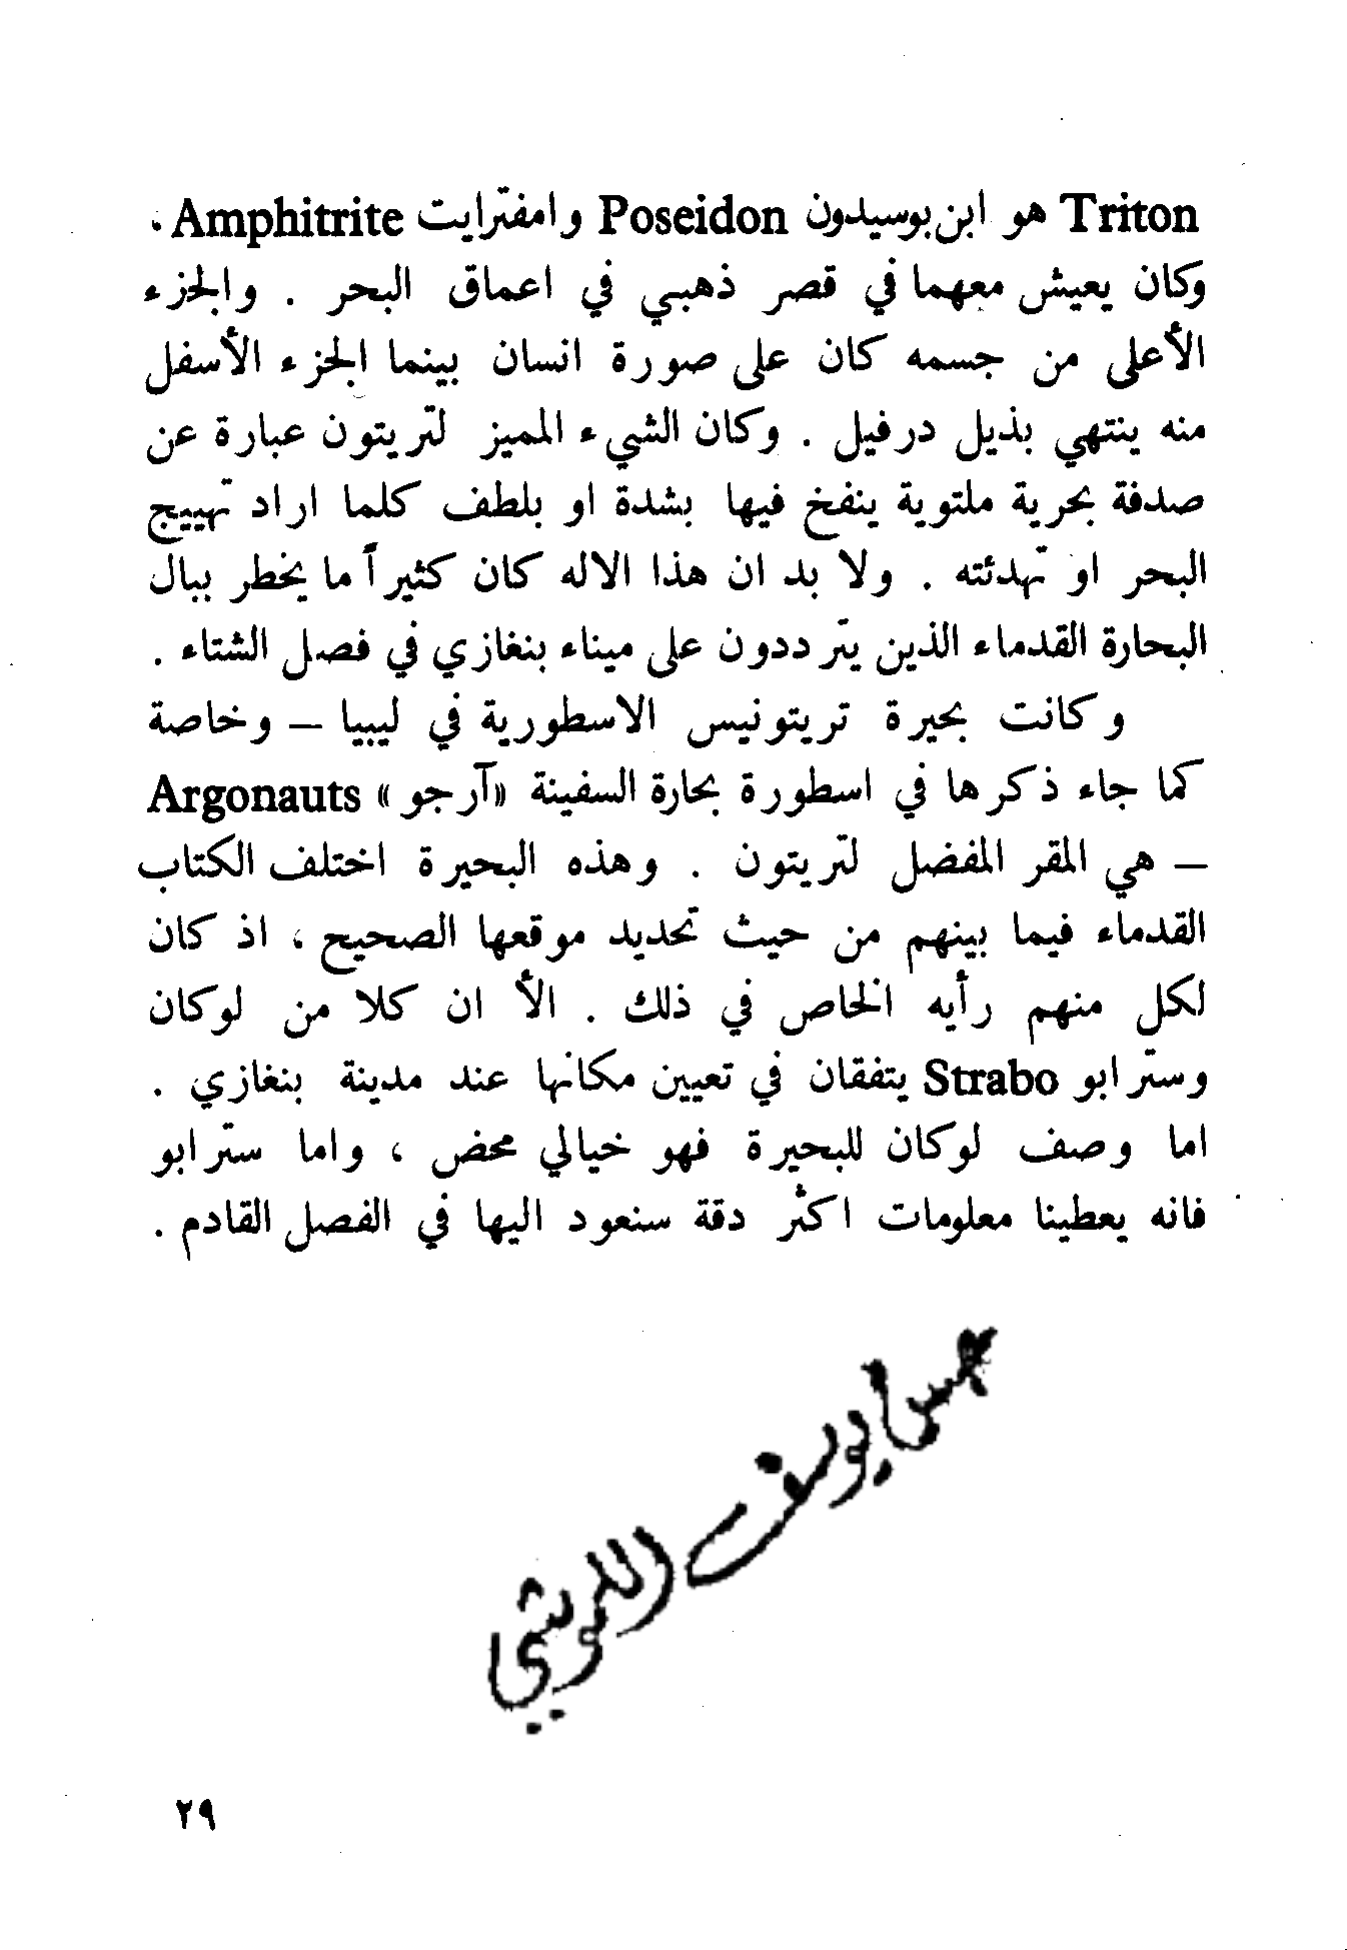 Triton هو ابن بوسيدون Poseidon وامفترايت Amphitrite ،
وكان يعيش معهما في قصر ذهبي في اعماق البحر . والجزء
الأعلى من جسمه كان على صورة انسان بينما الجزء الأسفل
منه ينتهي بذيل درفيل . وكان الشيء المميز لتريتون عبارة عن
صدفة بحرية ملتوية ينفخ فيها بشدة او بلطف كلما اراد تهييج
البحر او تهدئته . ولا بد ان هذا الاله كان كثيراً ما يخطر ببال
البحارة القدماء الذين يترددون على ميناء بنغازي في فصل الشتاء .
وكانت بحيرة تريتونيس الاسطورية في ليبيا – وخاصة
كما جاء ذكرها في اسطورة بحارة السفينة «آرجو» Argonauts
– هي المقر المفضل لتريتون . وهذه البحيرة اختلف الكتاب
القدماء فيما بينهم من حيث تحديد موقعها الصحيح ، اذ كان
لكل منهم رأيه الخاص في ذلك . الأ ان كلا من لوكان
وسترابو Strabo يتفقان في تعيين مكانها عند مدينة بنغازي .
اما وصف لوكان للبحيرة فهو خيالي محض ، واما سترابو
فانه يعطينا معلومات اكثر دقة سنعود اليها في الفصل القادم .
يوسف
٢٩